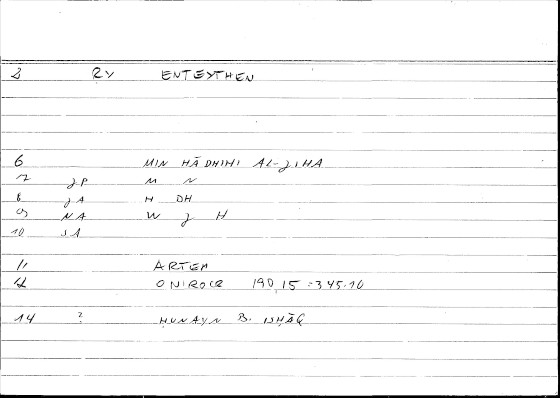 2 RY ENTEYTHEN
6 MIN HĀDHIHI AL-JIHA
7 JP M N
8 JA H DH
9 NA W J H
10 SA
11 ARTEM
ONIROCR 190,15 = 345.10
14 ? ḤUNAYN B. ISḤĀQ